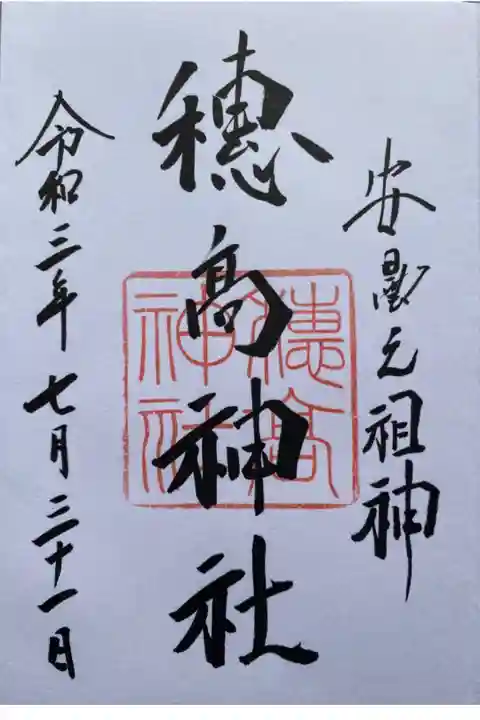 安曇元祖神
穂髙神社
穂髙
神社
令和三年七月三十一日